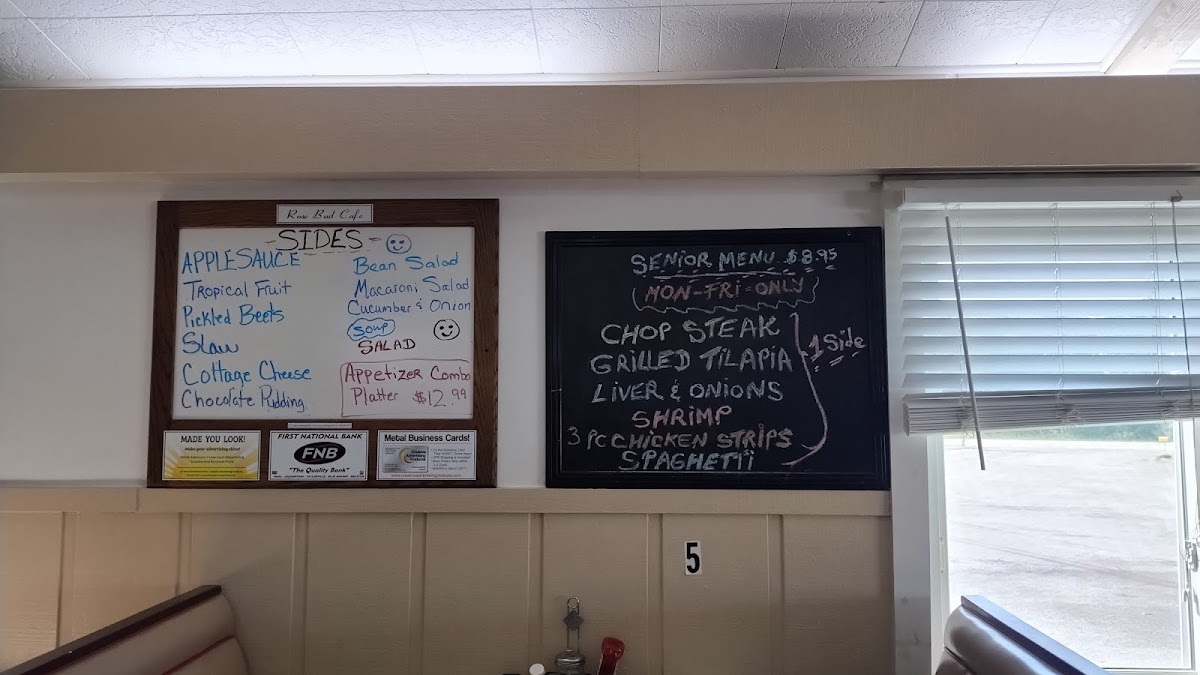 Rose Bud Cafe
-SIDES-
APPLESAUCE
Tropical Fruit
Pickled Beets
Slaw
Cottage Cheese
Chocolate Pudding
Bean Salad
Macaroni Salad
Cucumber & Onion
Soup
SALAD
Appetizer Combo
Platter $12.99
MADE YOU LOOK!
FIRST NATIONAL BANK
FNB
"The Quality Bank"
Metal Business Cards!
SENIOR MENU $8.95
(MON-FRI-ONLY)
CHOP STEAK
GRILLED TILAPIA
LIVER & ONIONS
SHRIMP
3 PC CHICKEN STRIPS
SPAGHETTI
1 Side
5